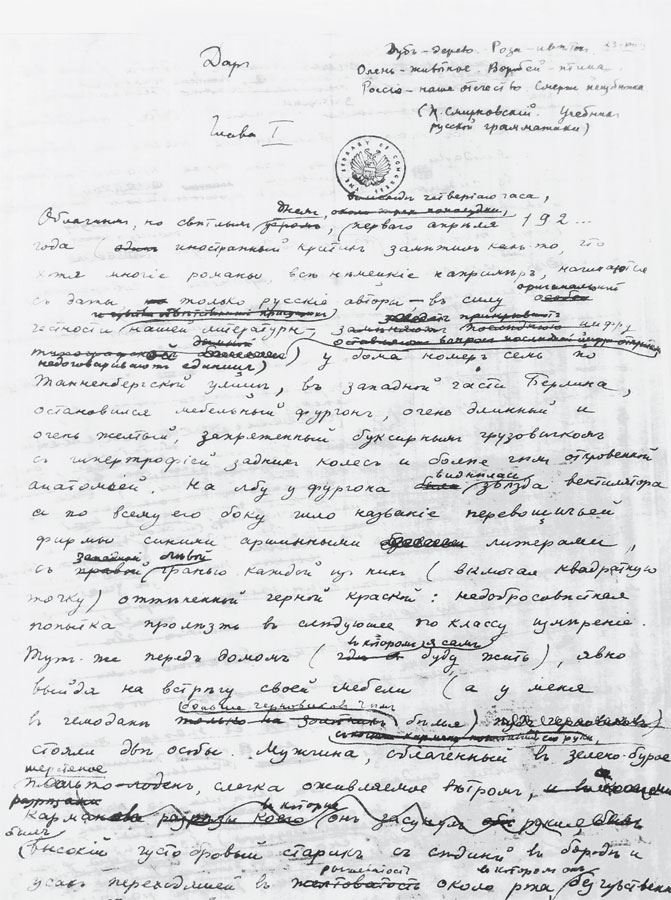 Даръ
Дубъ – дерево. Роза – цвѣтокъ.
Олень – животное. Воробей – птица.
Россiя – наше отечество. Смерть неизбѣжна.
(П. Смирновскiй. Учебникъ
русской грамматики)
Глава I
THE LIBRARY OF CONGRESS
въ исходѣ четвертаго часа,
днемъ,
Облачнымъ, но свѣтлымъ перваго апрѣля 192...
года ( иностранный критикъ замѣтилъ какъ-то, что
хотя многiе романы, всѣ нѣмецкiе напримѣръ, начинаются
оригинальной
съ даты, только русскiе авторы – въ силу
честности нашей литературы
недоговариваютъ единицъ) у дома номеръ семь по
Танненбергской улицѣ, въ западной части Берлина,
остановился мебельный фургонъ, очень длинный и
очень желтый, запряженный буксирнымъ грузовикомъ
съ гипертрофiей заднихъ колесъ и болѣе чѣмъ откровенной
анатомiей. На лбу у фургона виднѣлась звѣзда вентилятора
а по всему его боку шло названiе перевозчичьей
фирмы синими аршинными литерами,
съ лѣвой гранью каждой изъ нихъ (включая квадратную
точку) оттѣненной черной краской: недобросовѣстная
попытка пролѣзть въ слѣдующее по классу измѣренiе.
въ которомъ я самъ
Тутъ же передъ домомъ ( буду жить), явно
выйдя на встрѣчу своей мебели (а у меня
больше черновиковъ чѣмъ
въ чемоданѣ бѣлья)
стояли двѣ особы. Мужчина, облаченный въ зелено-бурое
шерстяное
пальто, слегка оживляемое вѣтромъ,
былъ
высокiй густобровый старикъ съ сѣдиной въ бородѣ и
усахъ переходящей въ рыжеватость около рта, въ которомъ онъ безчувственно